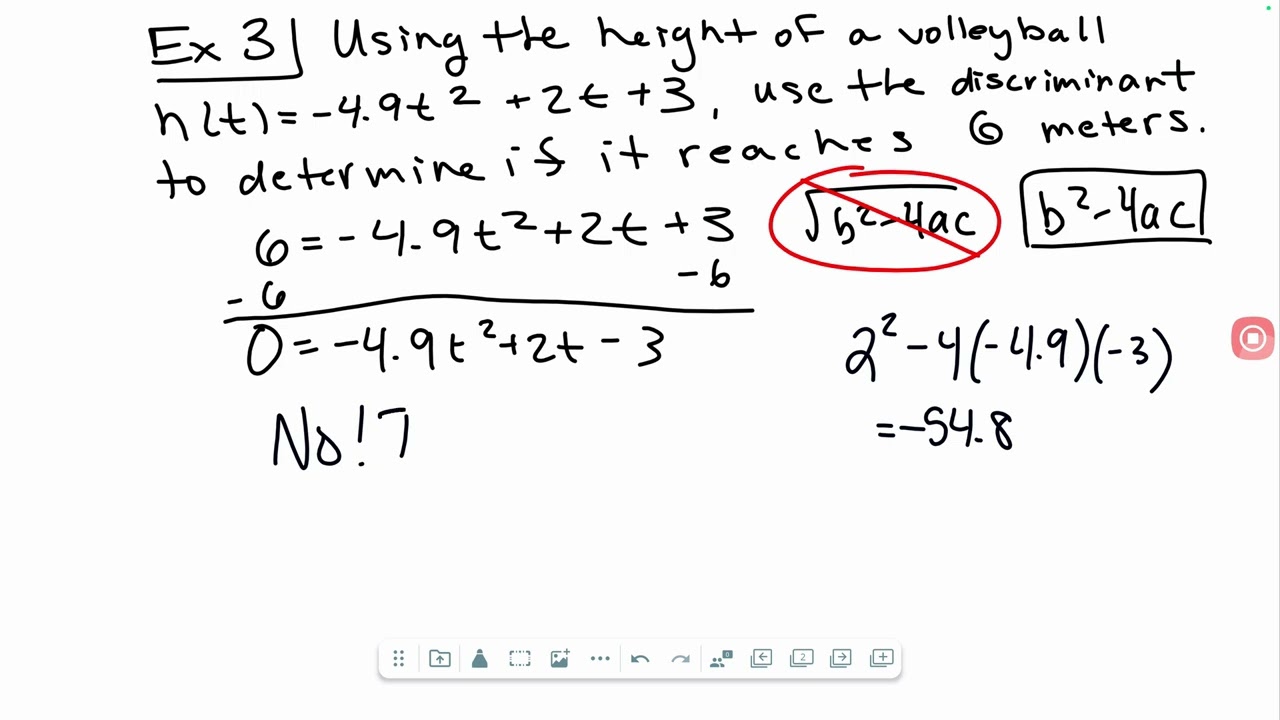 Ex 3 Using the height of a volleyball
h(t) = -4.9t² + 2t + 3, use the discriminant
to determine if it reaches 6 meters.
6 = -4.9t² + 2t + 3
-6 -6
0 = -4.9t² + 2t - 3
No! T
√b²-4ac
b²-4ac
2² - 4(-4.9)(-3)
= -54.8
0
2